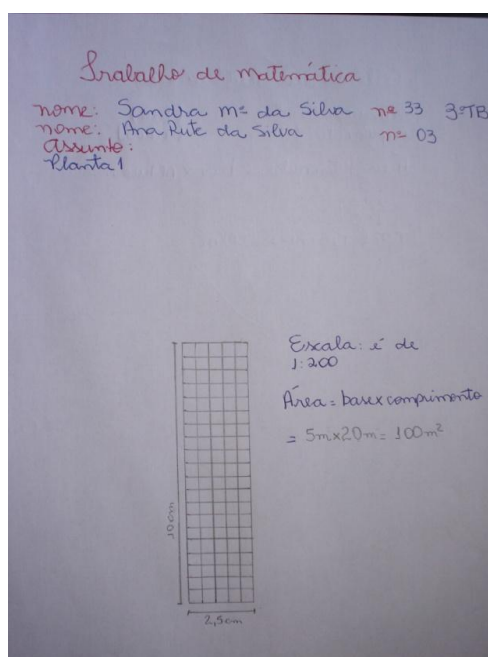 Trabalho de matemática
nome: Sandra mª da Silva nº 33 3ºTB
nome: Ana Rute da Silva nº 03
assunto:
Planta 1
Escala: é de
1:200
Área = base x comprimento
= 5m x 20m = 100m²
10cm
2,5cm